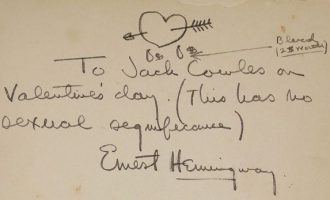 Blood
To Jack Cowles on
Valentine's day. (This has no
sexual segnificance)
Ernest Hemingway.